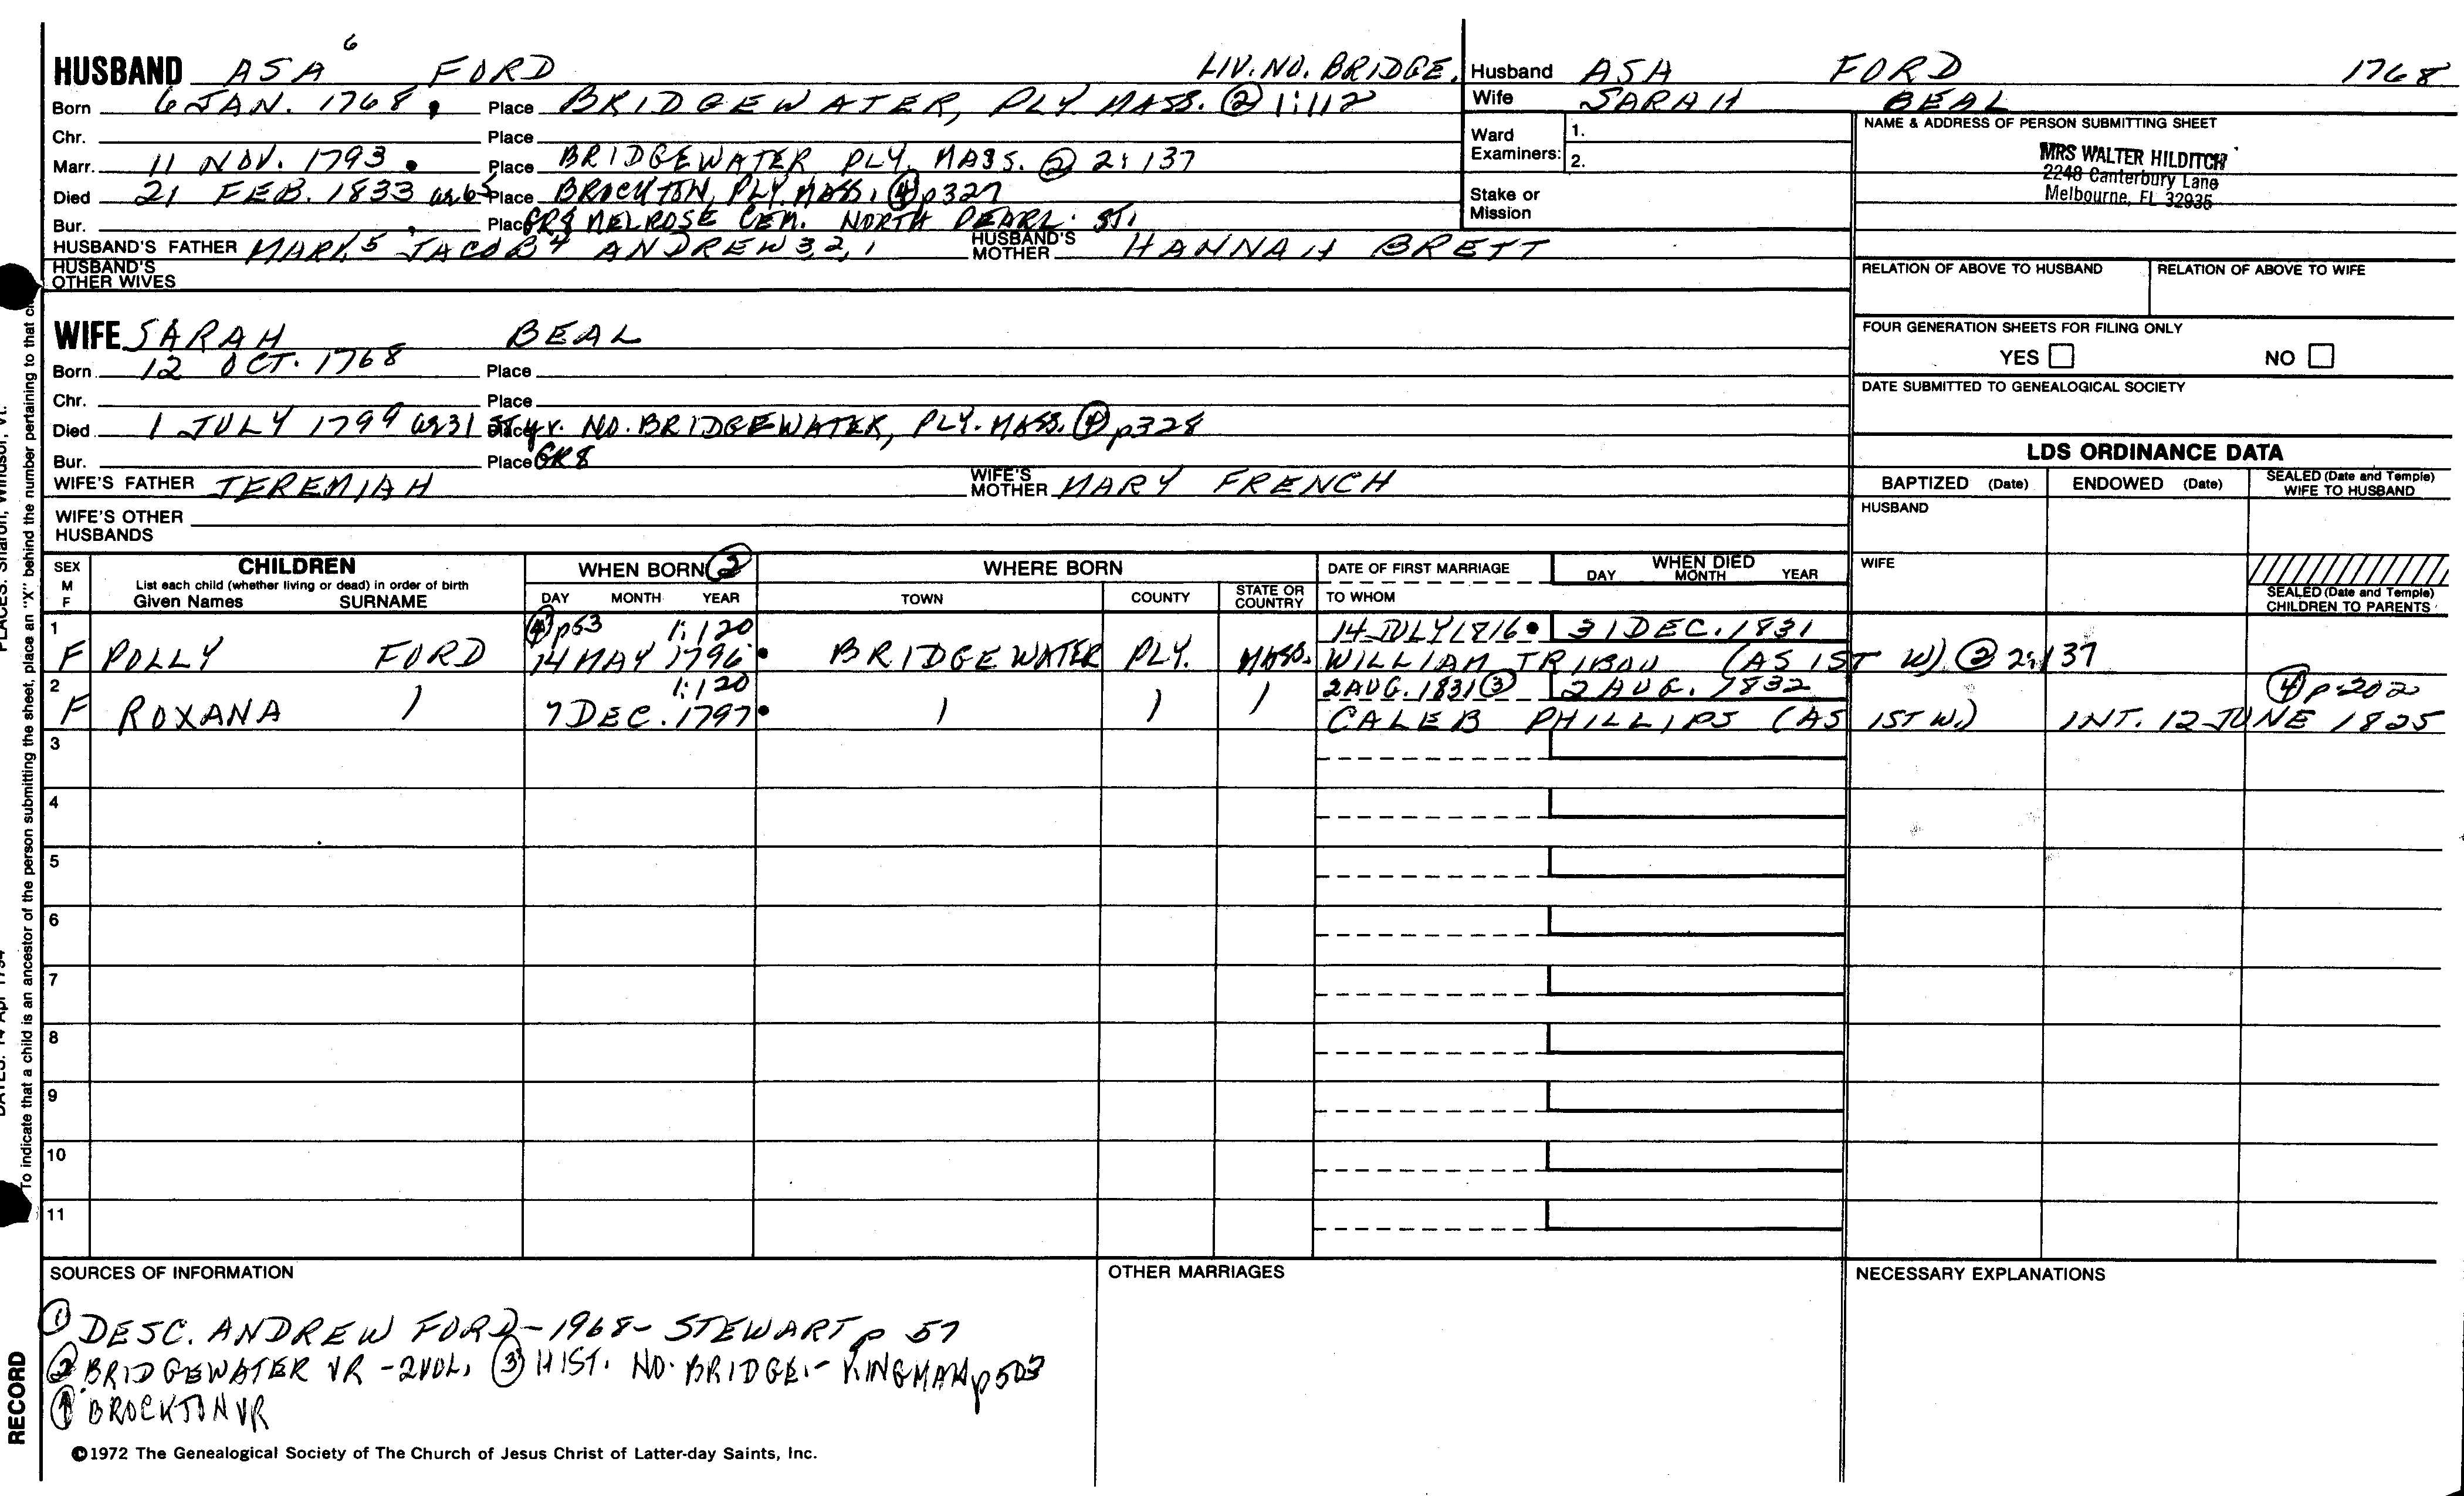 HUSBAND ASA 6 FORD LIV. NO. BRIDGE.
Husband ASA FORD 1768
Born 6 JAN. 1768 Place BRIDGEWATER, PLY. MASS. ② 1:112
Wife SARAH BEAL
Chr. Place
Marr. 11 NOV. 1793 Place BRIDGEWATER PLY. MASS. ② 2:137
Died 21 FEB. 1833 ae 65 Place BROCKTON, PLY. MASS. ④ p327
Bur. Place GR8 MELROSE CEM. NORTH PEARL ST.
HUSBAND'S FATHER MARK 5 JACOB 4 ANDREW 3, 2, 1 HUSBAND'S MOTHER HANNAH BRETT
HUSBAND'S OTHER WIVES
Ward Examiners: 1.
2.
Stake or Mission
NAME & ADDRESS OF PERSON SUBMITTING SHEET
MRS WALTER HILDITCH
2248 Canterbury Lane
Melbourne, FL 32935
RELATION OF ABOVE TO HUSBAND RELATION OF ABOVE TO WIFE
FOUR GENERATION SHEETS FOR FILING ONLY
YES NO
DATE SUBMITTED TO GENEALOGICAL SOCIETY
WIFE SARAH BEAL
Born 12 OCT. 1768 Place
Chr. Place
Died 1 JULY 1799 ae 31 st yr. Place NO. BRIDGEWATER, PLY. MASS. ④ p328
Bur. Place GR8
WIFE'S FATHER JEREMIAH WIFE'S MOTHER MARY FRENCH
WIFE'S OTHER HUSBANDS
LDS ORDINANCE DATA
BAPTIZED (Date) ENDOWED (Date) SEALED (Date and Temple) WIFE TO HUSBAND
HUSBAND
WIFE
SEALED (Date and Temple) CHILDREN TO PARENTS
SEX M F CHILDREN WHEN BORN ② WHERE BORN DATE OF FIRST MARRIAGE WHEN DIED
List each child (whether living or dead) in order of birth
Given Names SURNAME DAY MONTH YEAR TOWN COUNTY STATE OR COUNTRY TO WHOM DAY MONTH YEAR
1 ④ p53 1:120 14 JULY 1816 31 DEC. 1831
F POLLY FORD 14 MAY 1796 BRIDGEWATER PLY. MASS. WILLIAM TRIBOU (AS 1ST W) ② 2:137
2 1:120 2 AUG. 1831 ③ 2 AUG. 1832 ④ p. 202
F ROXANA ) 7 DEC. 1797 ) ) ) CALEB PHILLIPS (AS 1ST W.) INT. 12 JUNE 1825
3
4
5
6
7
8
9
10
11
SOURCES OF INFORMATION
① DESC. ANDREW FORD - 1968 - STEWART p 57
② BRIDGEWATER VR - 2 VOL. ③ HIST. NO. BRIDGE. - KINGMAN p503
④ BROCKTON VR
OTHER MARRIAGES
NECESSARY EXPLANATIONS
©1972 The Genealogical Society of The Church of Jesus Christ of Latter-day Saints, Inc.
To indicate that a child is an ancestor of the person submitting the sheet, place an "X" behind the number pertaining to that
PLACES: Sharon, Windsor, Vt.
DATES: 14 Apr 1794
RECORD